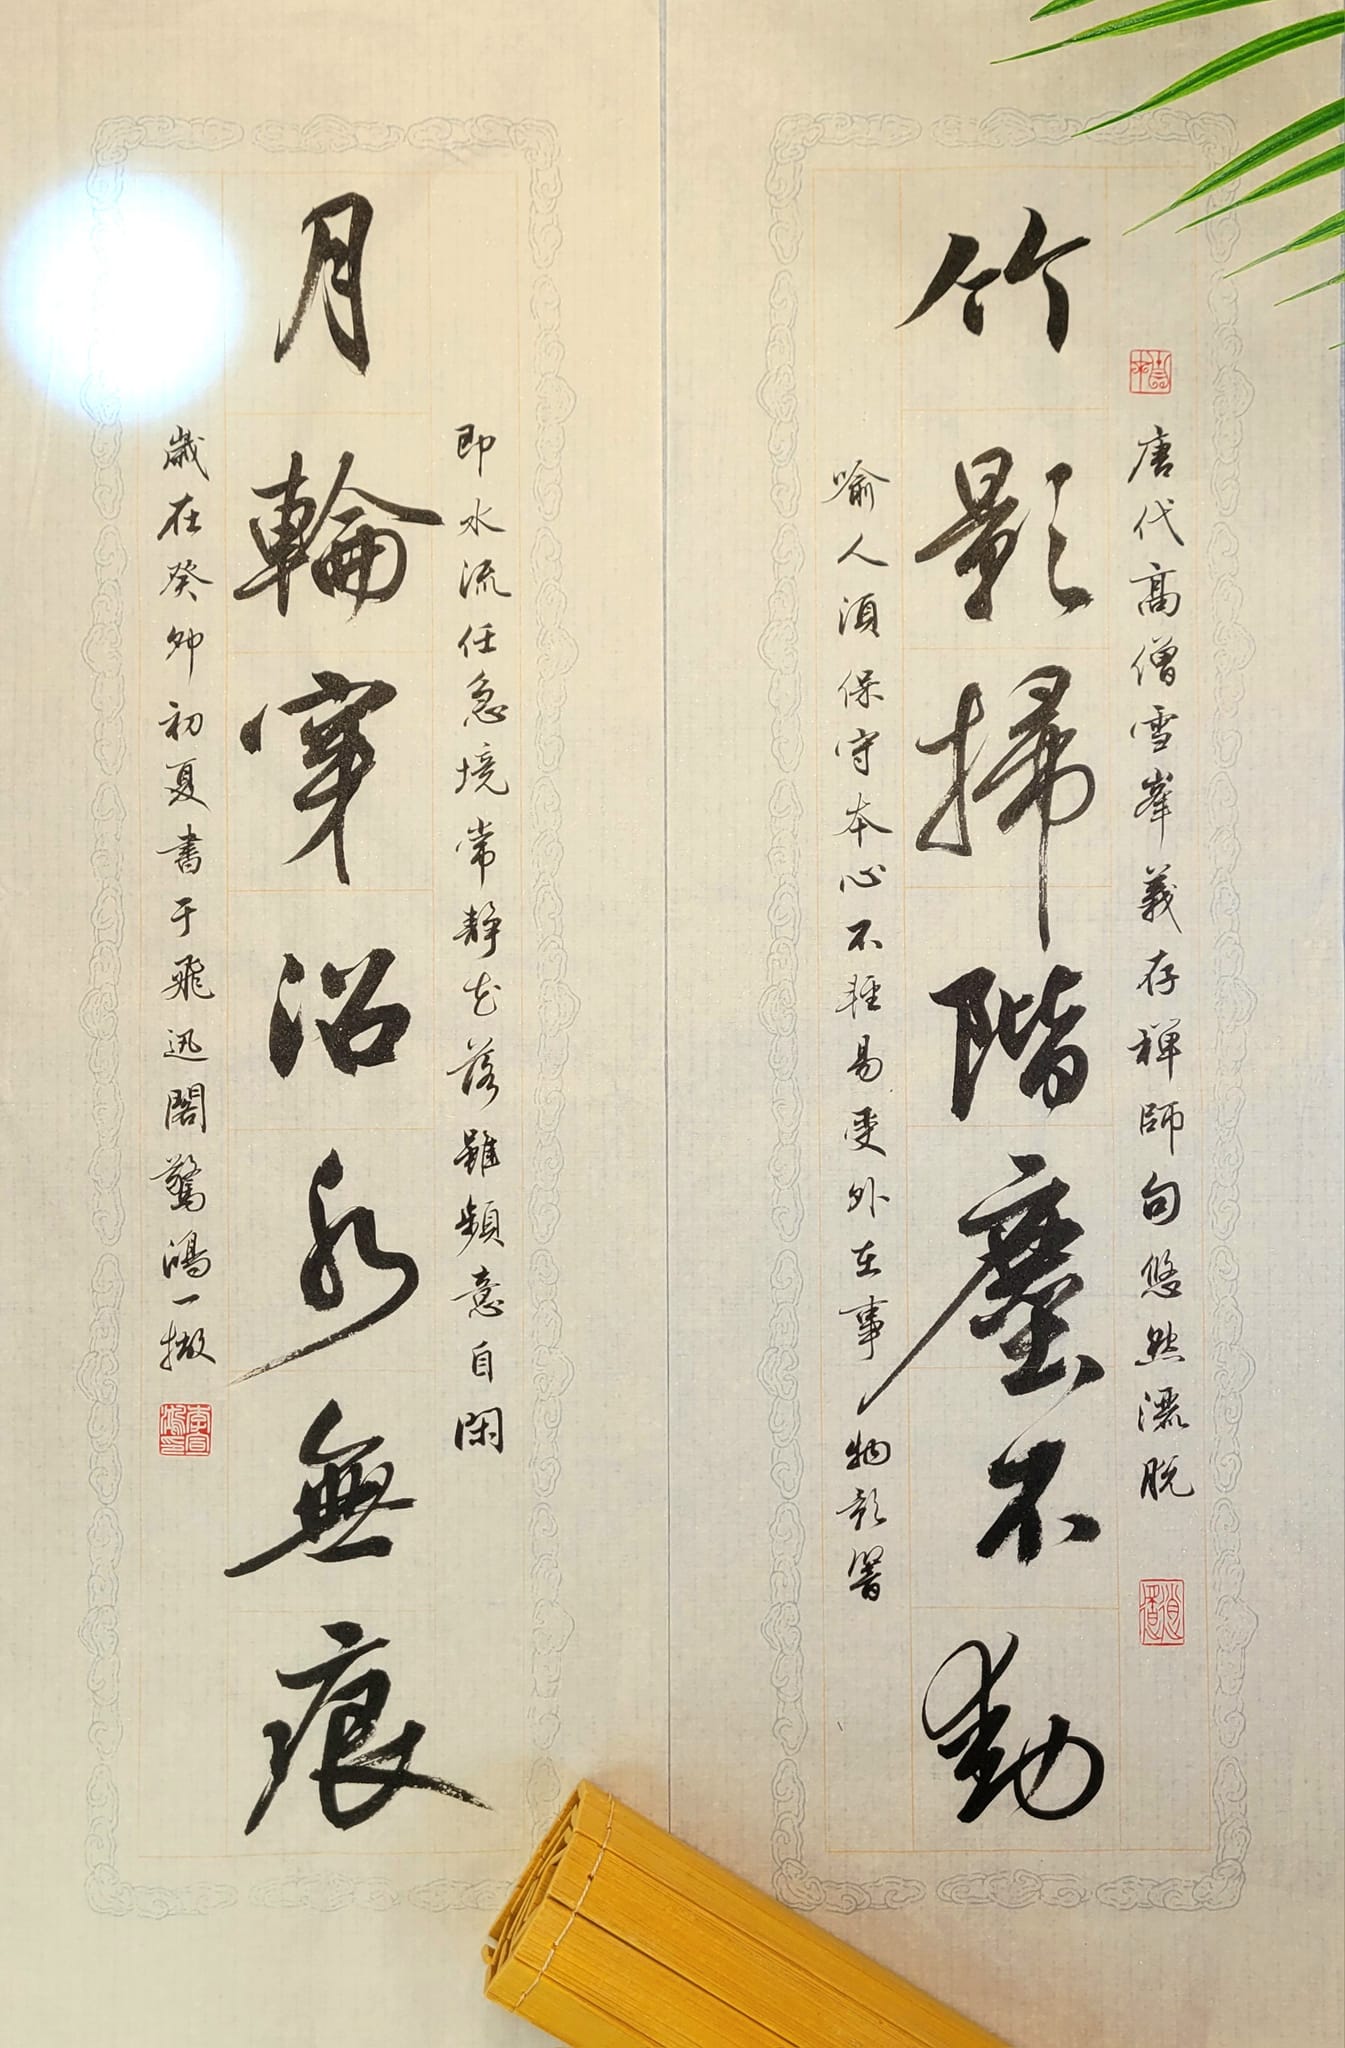 唐代高僧雪峯義存禪師句悠然灑脫
竹影掃階塵不動
喻人須保守本心不輕易受外在事物影響
即水流任急境常靜花落雖頻意自閑
月輪穿沼水無痕
歲在癸卯初夏書于飛迅閣驚鴻一撇